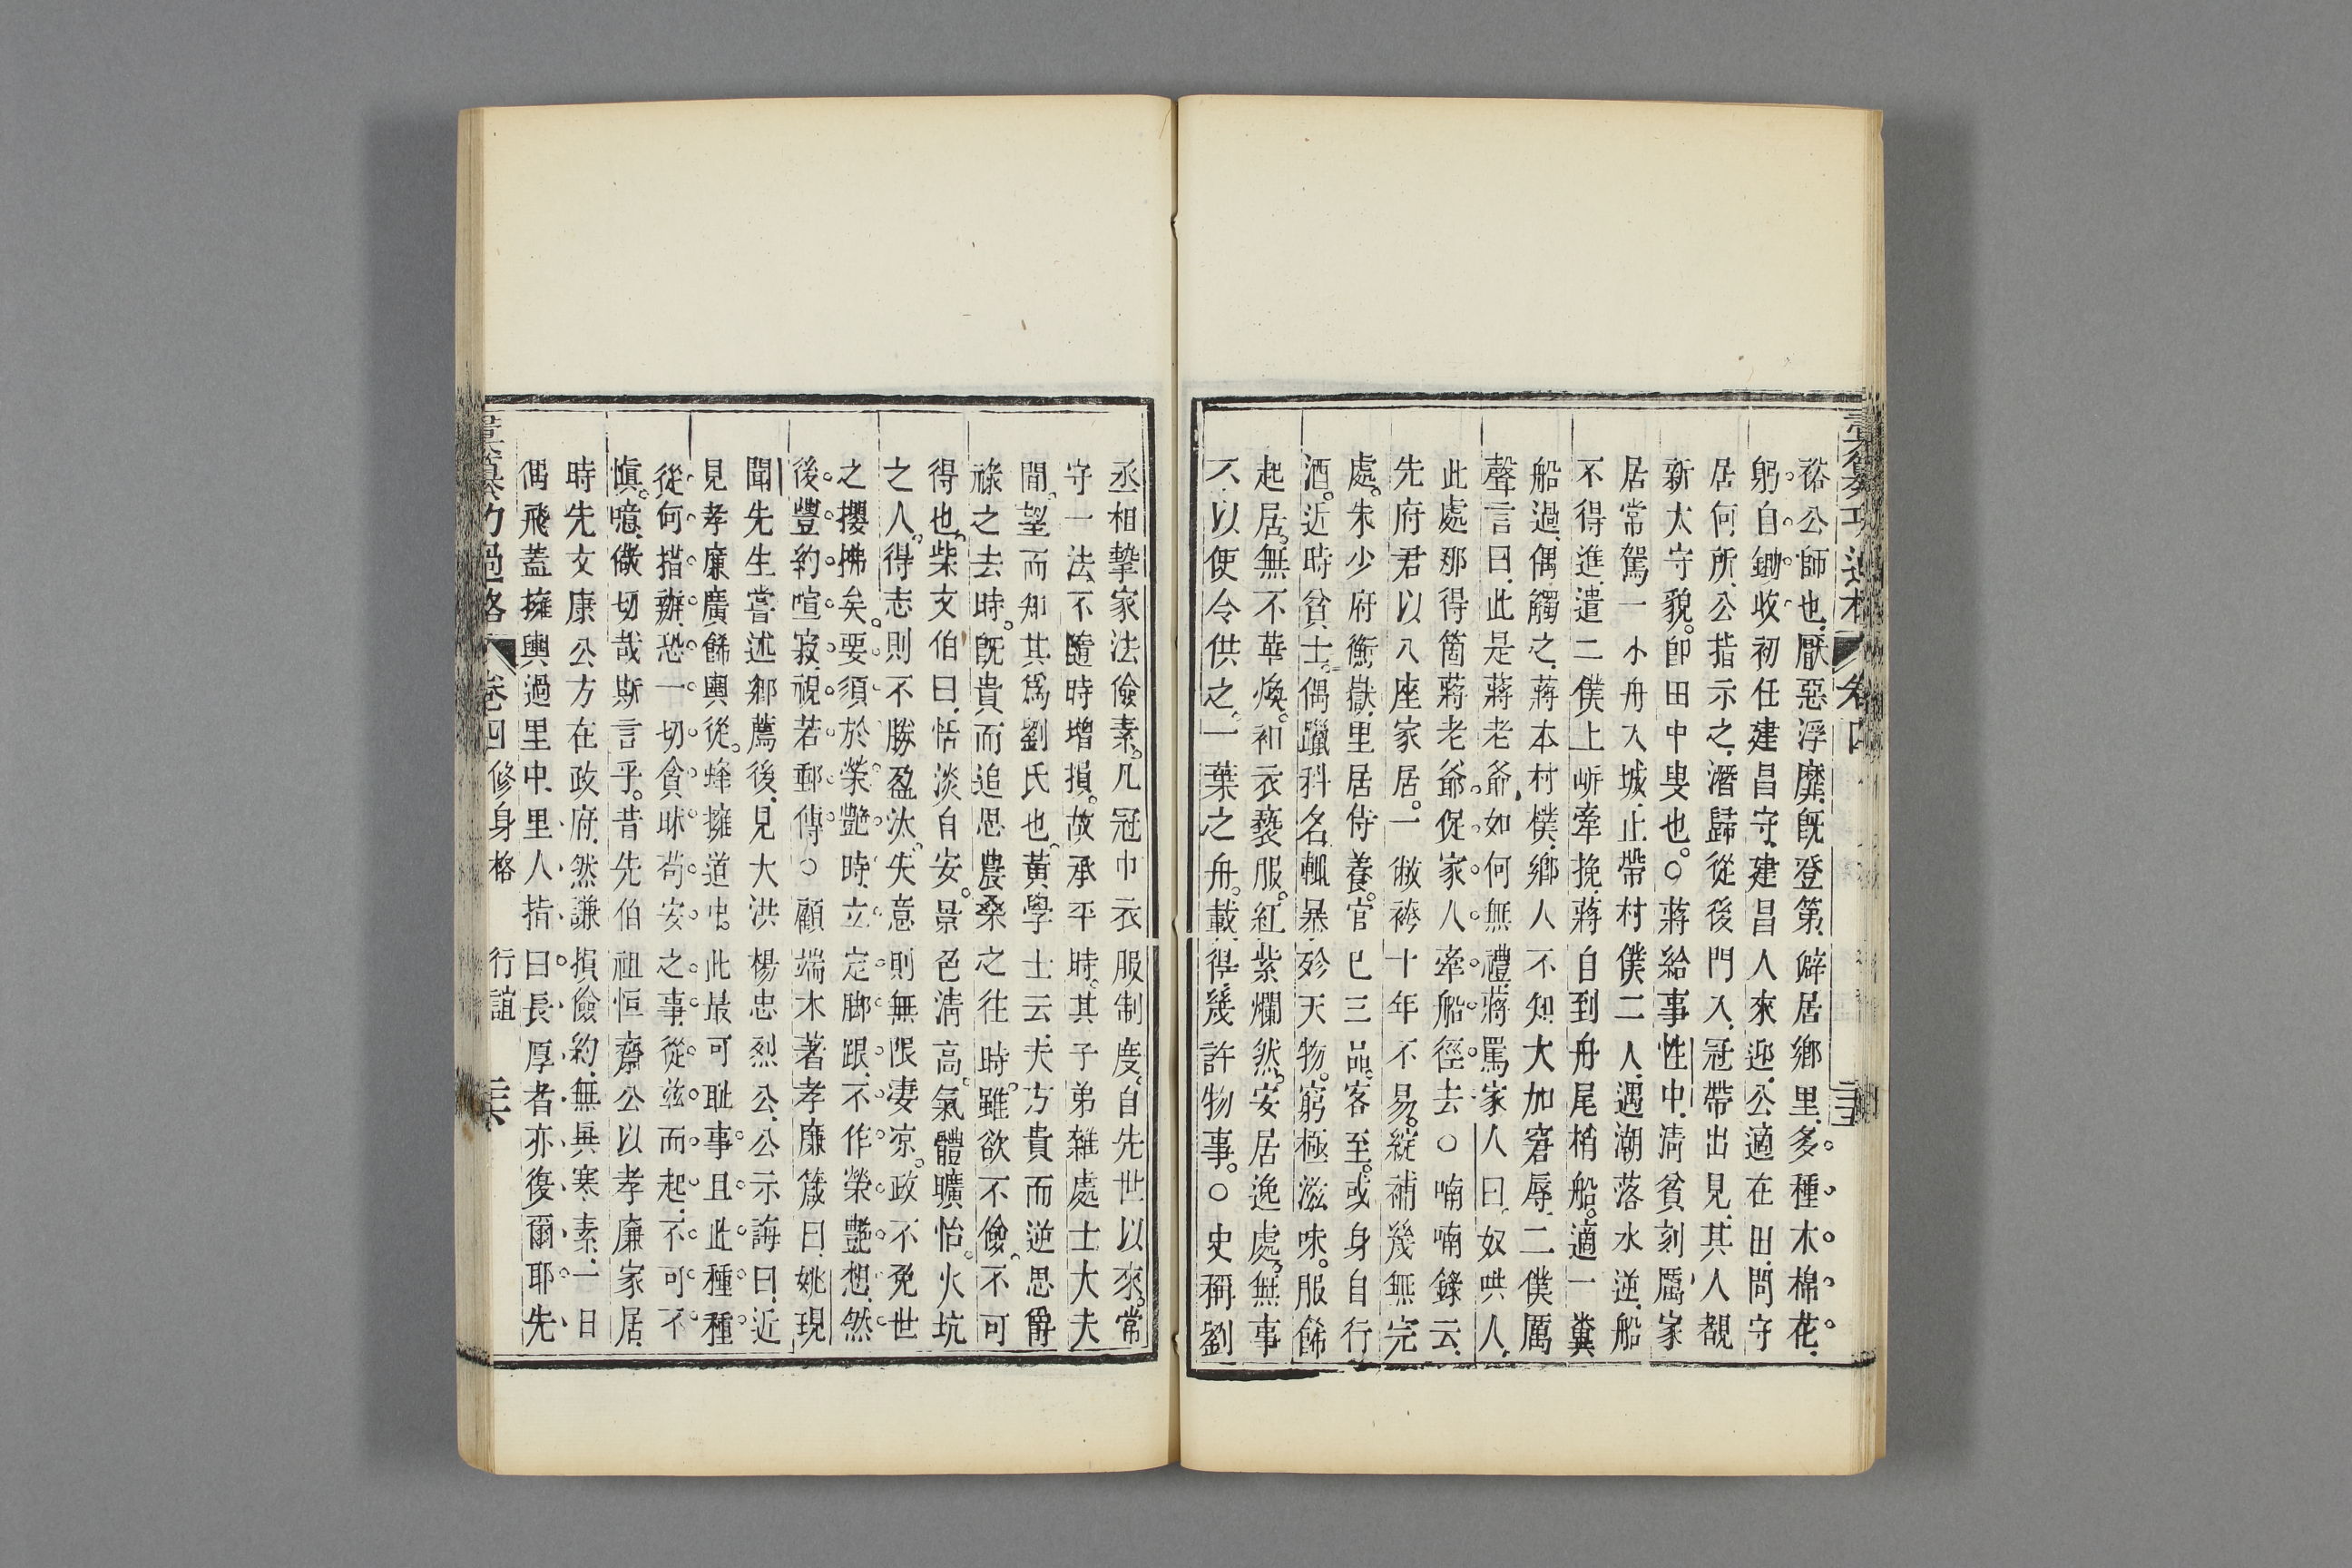 裕公師也厭惡浮靡旣登第僻居鄉里多種木棉花
躬自鋤收初任建昌守建昌人來迎公適在田問守
居何所公指示之潛歸從後門入冠帶出見其人覩
新太守貌卽田中叟也○蔣給事性中淸貧刻厲家
居常駕一小舟入城止帶村僕二人遇潮落水逆船
不得進遣二僕上岍牽挽蔣自到舟尾梢船適一糞
船過偶觸之蔣本村樸鄉人不知大加窘辱二僕厲
聲言曰此是蔣老爺如何無禮蔣罵家人曰奴哄人
此處那得箇蔣老爺促家人牽船徑去○喃喃錄云
先府君以八座家居一敝袴十年不易綻補幾無完
處朱少府衡嶽里居侍養官已三品客至或身自行
酒近時貧士偶躐科名輒暴殄天物窮極滋味服飾
起居無不華煥袒衣褻服紅紫爛然安居逸處無事
不以使令供之一葉之舟載得幾許物事○史稱劉
丞相摯家法儉素凡冠巾衣服制度自先世以來常
守一法不隨時增損故承平時其子弟雜處士大夫
間望而知其爲劉氏也黃學士云夫方貴而逆思爵
祿之去時旣貴而追思農桑之往時雖欲不儉不可
得也柴文伯曰恬淡自安景色淸高氣體曠怡火坑
之人得志則不勝盈汰失意則無限凄凉政不免世
之攖拂矣要須於榮艷時立定脚跟不作榮艷想然
後豐約喧寂視若郵傳○顧端木著孝廉箴曰姚現
聞先生嘗述鄉薦後見大洪楊忠烈公公示誨曰近
見孝廉廣飾輿從蜂擁道中此最可耻事且此種種
從何措辦恐一切貪昧苟安之事從兹而起不可不
愼噫儆切哉斯言乎昔先伯祖恒齋公以孝廉家居
時先文康公方在政府然謙損儉約無異寒素一日
偶飛蓋擁輿過里中里人指曰長厚者亦復爾耶先
卷四 修身格 行誼